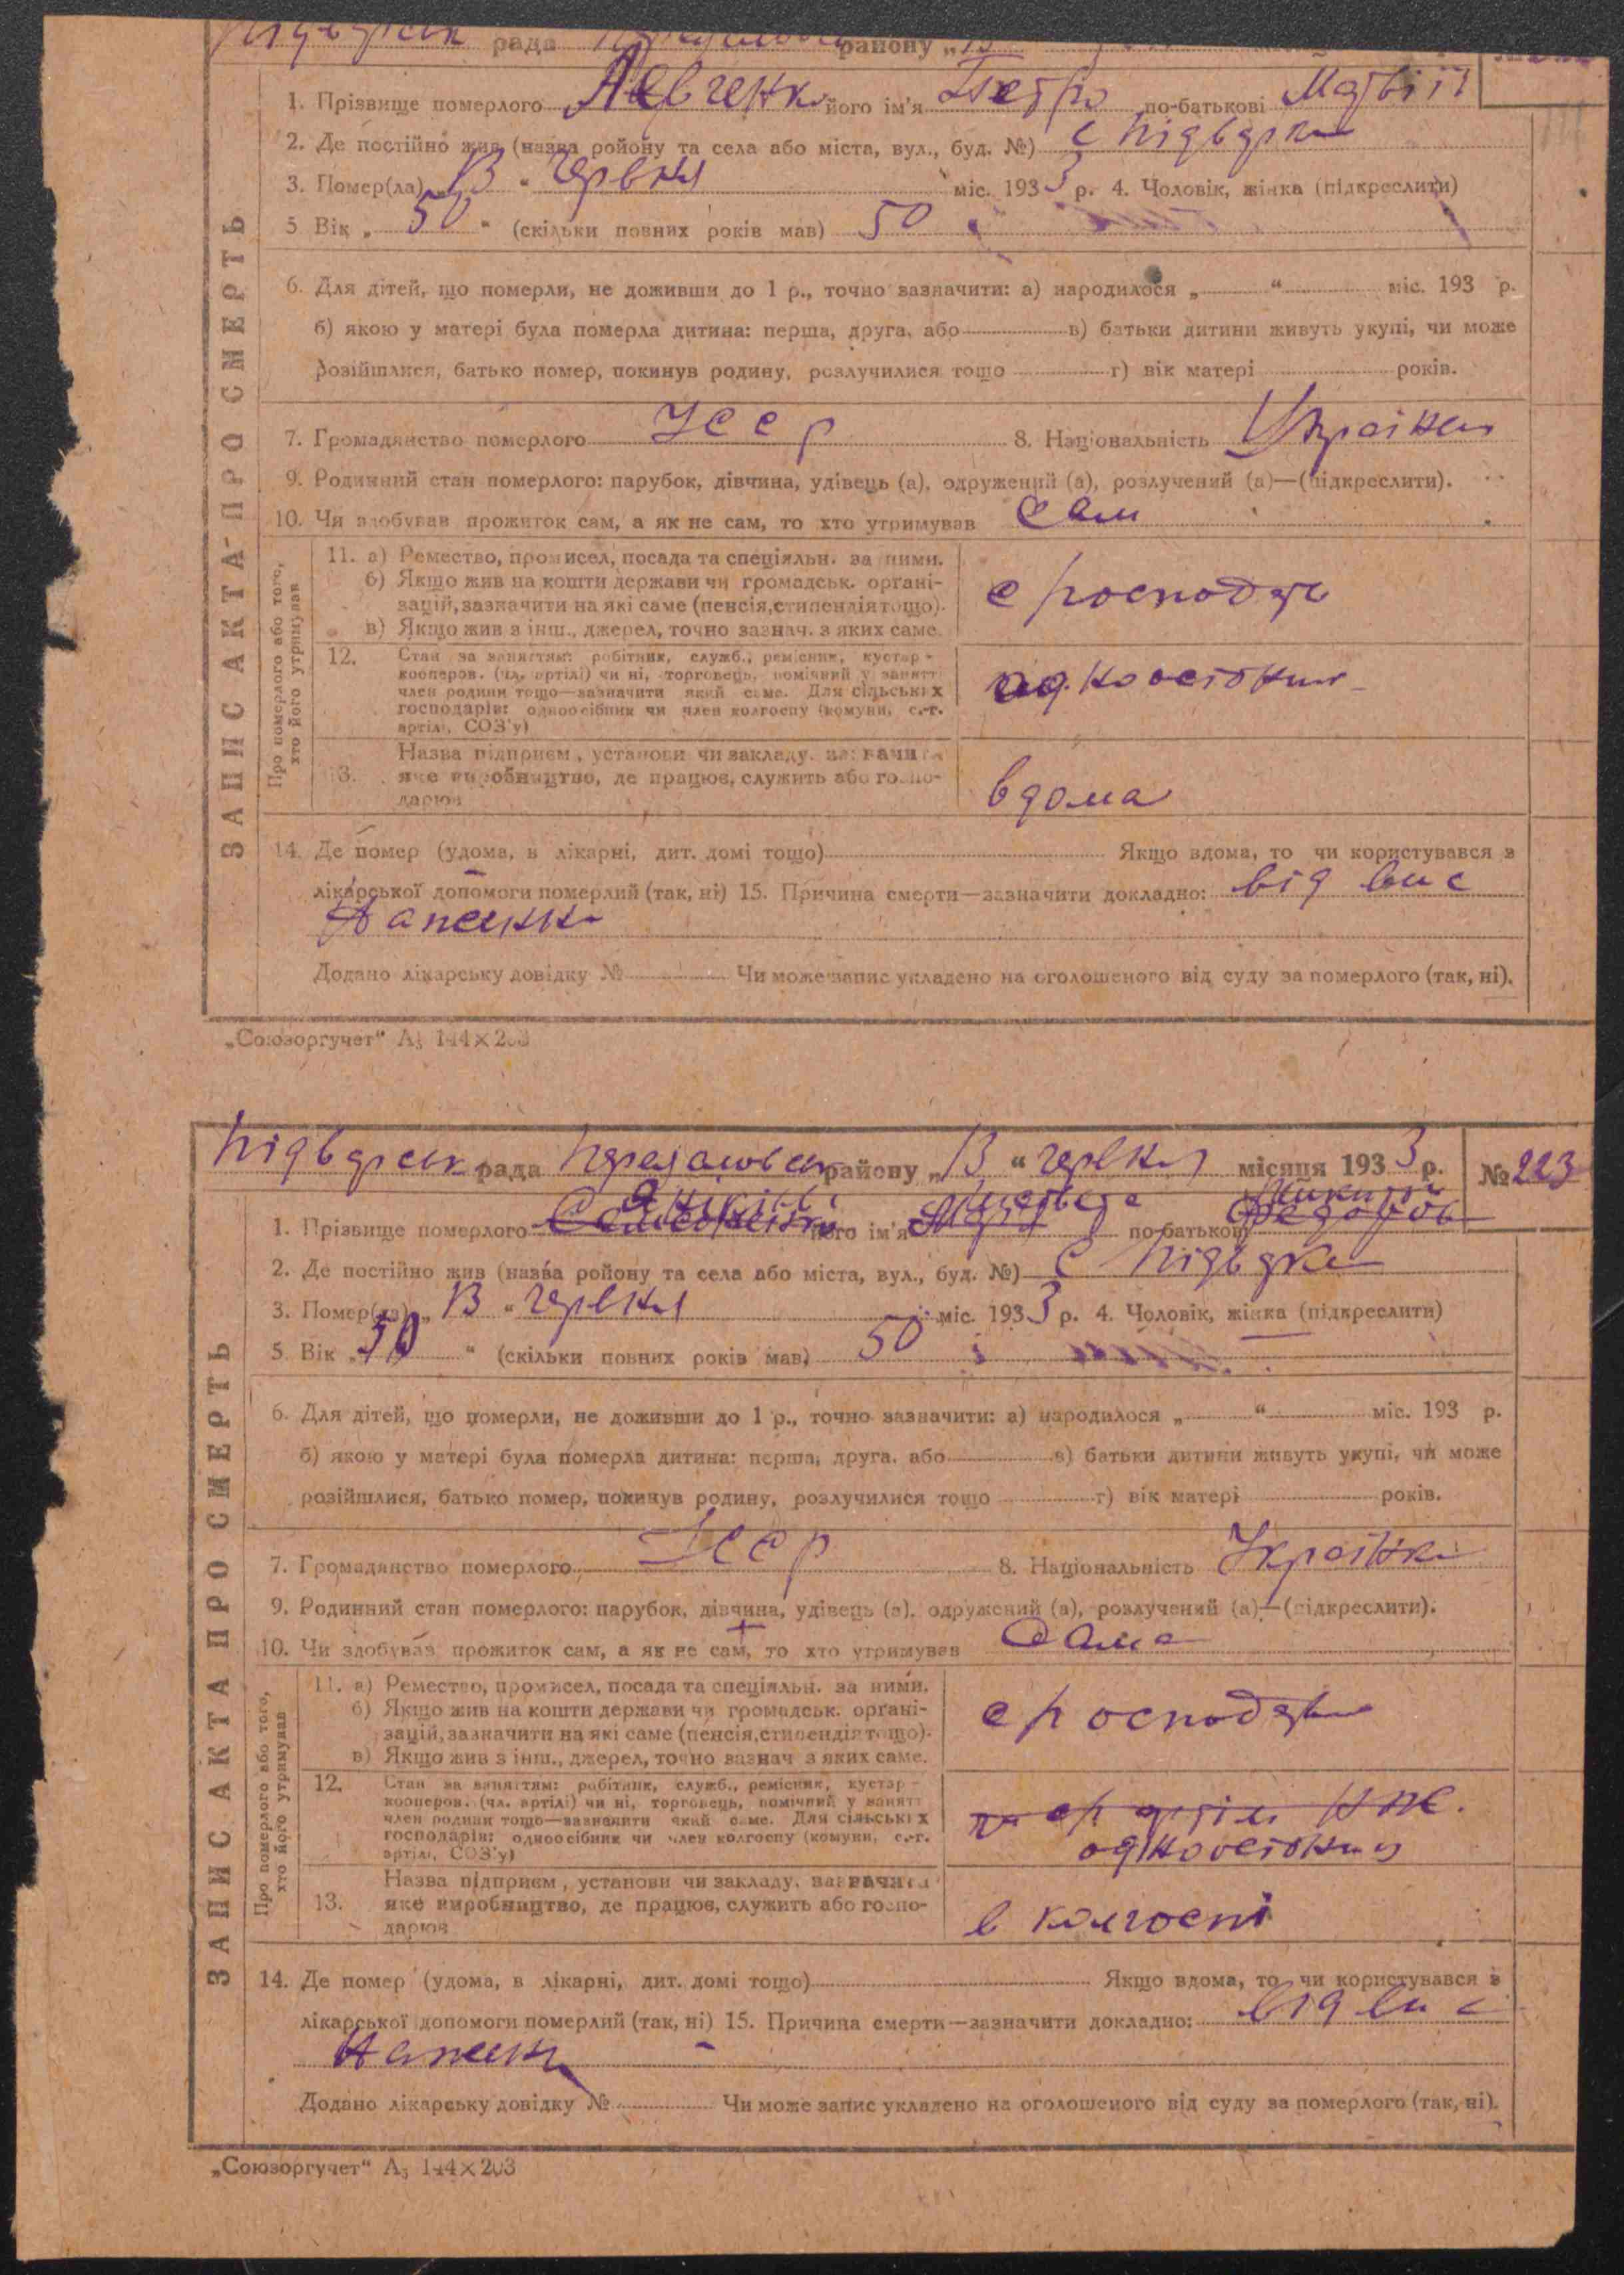 рада району „13
1. Прізвище померлого Левченко його ім'я Петро по-батькові Матвій
2. Де постійно жив (назва ройону та села або міста, вул., буд. №) с Підварки
3. Помер(ла) „13“ червня міс. 1933 р. 4. Чоловік, жінка (підкреслити)
5 Вік „50“ (скільки повних років мав) 50
6. Для дітей, що померли, не доживши до 1 р., точно зазначити: а) народилося „ “ міс. 193 р.
б) якою у матері була померла дитина: перша, друга, або в) батьки дитини живуть укупі, чи може
розійшлися, батько помер, покинув родину, розлучилися тощо г) вік матері років.
7. Громадянство померлого УССР 8. Національність
9. Родинний стан померлого: парубок, дівчина, удівець (а), одружений (а), розлучений (а)—(підкреслити).
10. Чи здобував прожиток сам, а як не сам, то хто утримував сам
ЗАПИС АКТА ПРО СМЕРТЬ
Про померлого або того, хто його утримував
11. а) Ремество, промисел, посада та спеціяльн. за ними.
б) Якщо жив на кошти держави чи громадськ. орґані-
зацій, зазначити на які саме (пенсія, стипендія тощо).
в) Якщо жив з інш., джерел, точно зазнач. з яких саме.
12. Стан за заняттям: робітник, служб., ремісник, кустар-
кооперов. (чл. артілі) чи ні, торговець, помічний у занятт
член родини тощо—зазначити який саме. Для сільських
господарів: одноосібник чи член колгоспу (комуни, с.-г.
артілі, СОЗ'у)
Назва підприєм., установи чи закладу,
13. яке виробництво, де працює, служить або госпо-
дарює
вдома
14. Де помер (удома, в лікарні, дит. домі тощо) Якщо вдома, то чи користувався з
лікарської допомоги померлий (так, ні) 15. Причина смерти—зазначити докладно: від вис
Додано лікарську довідку № Чи може запис укладено на оголошеного від суду за померлого (так, ні).
„Союзоргучет“ А₅ 144×203
Підварськ рада району „13“ червня місяця 1933 р. №223
1. Прізвище померлого його ім'я по-батькові
2. Де постійно жив (назва ройону та села або міста, вул., буд. №) с Підварки
3. Помер(ла) „13“ червня міс. 1933 р. 4. Чоловік, жінка (підкреслити)
5 Вік „50“ (скільки повних років мав) 50
6. Для дітей, що померли, не доживши до 1 р., точно зазначити: а) народилося „ “ міс. 193 р.
б) якою у матері була померла дитина: перша, друга, або в) батьки дитини живуть укупі, чи може
розійшлися, батько помер, покинув родину, розлучилися тощо г) вік матері років.
7. Громадянство померлого УССР 8. Національність Українка
9. Родинний стан померлого: парубок, дівчина, удівець (а), одружений (а), розлучений (а)—(підкреслити).
10. Чи здобував прожиток сам, а як не сам, то хто утримував сама
ЗАПИС АКТА ПРО СМЕРТЬ
Про померлого або того, хто його утримував
11. а) Ремество, промисел, посада та спеціяльн. за ними.
б) Якщо жив на кошти держави чи громадськ. орґані-
зацій, зазначити на які саме (пенсія, стипендія тощо).
в) Якщо жив з інш., джерел, точно зазнач. з яких саме.
12. Стан за заняттям: робітник, служб., ремісник, кустар-
кооперов. (чл. артілі) чи ні, торговець, помічний у занятт
член родини тощо—зазначити який саме. Для сільських
господарів: одноосібник чи член колгоспу (комуни, с.-г.
артілі, СОЗ'у)
Назва підприєм., установи чи закладу, зазначити
13. яке виробництво, де працює, служить або госпо-
дарює
в колгоспі
14. Де помер (удома, в лікарні, дит. домі тощо) Якщо вдома, то чи користувався з
лікарської допомоги померлий (так, ні) 15. Причина смерти—зазначити докладно: від вис
Додано лікарську довідку № Чи може запис укладено на оголошеного від суду за померлого (так, ні).
„Союзоргучет“ А₅ 144×203